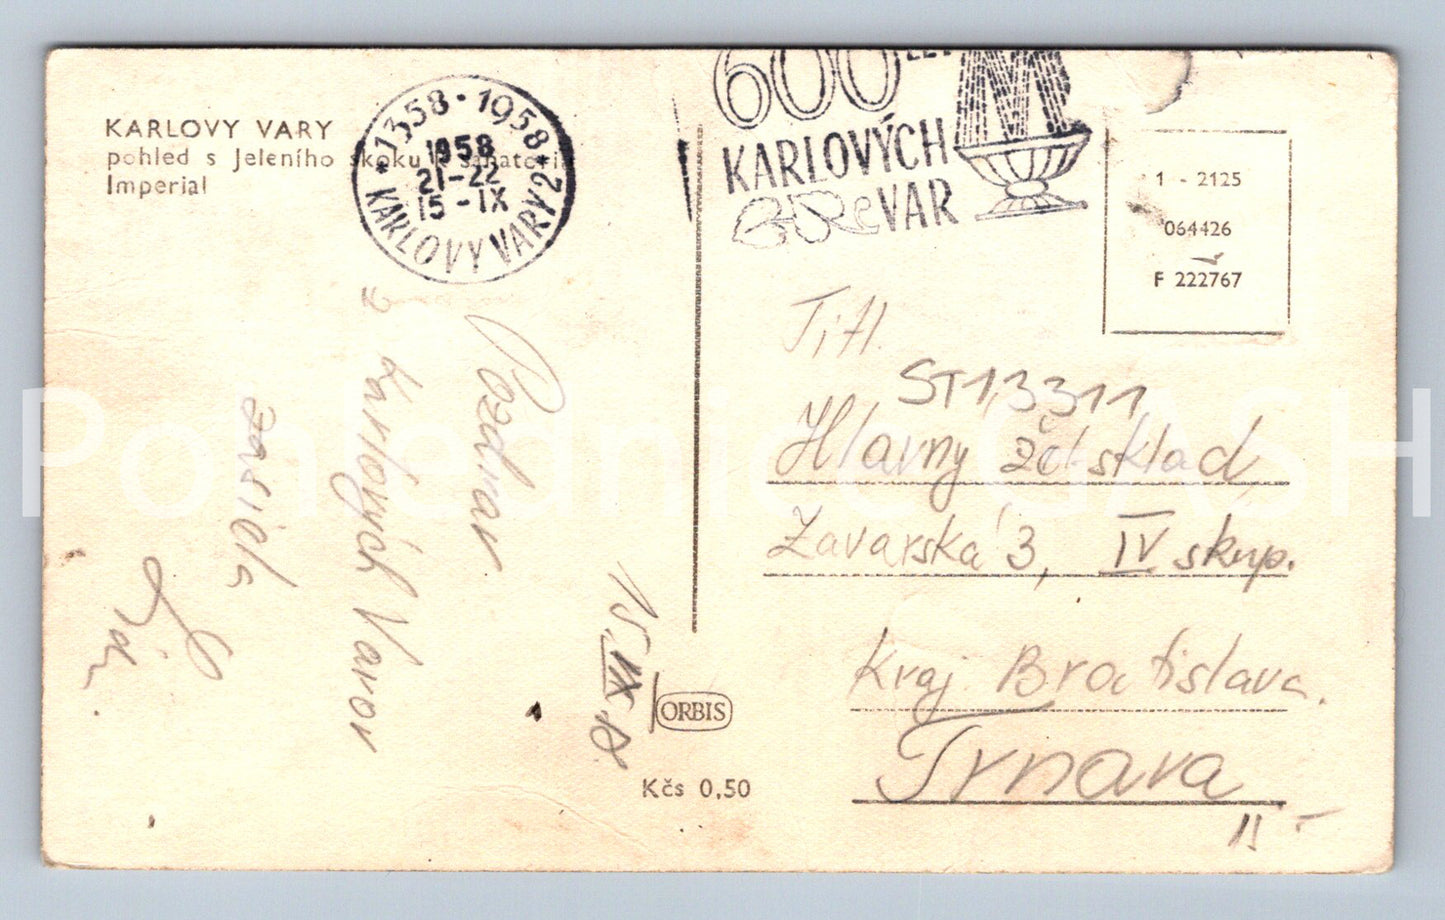 KARLOVY VARY
pohled s Jeleního skoku k sanatoriu
Imperial
1358 · 1958
1958
21-22
15 -IX
KARLOVY VARY 2
600 LET
KARLOVÝCH
VAR
1 - 2125
064426
F 222767
Pozdrav
z Karlových Varov
zasiela
15. IX. 58
Titl.
ST13311
Hlavny žel sklad
Zavarska 3, IV skup.
Kraj Bratislava.
Trnava
ORBIS
Kčs 0,50
Pohlednice GASH